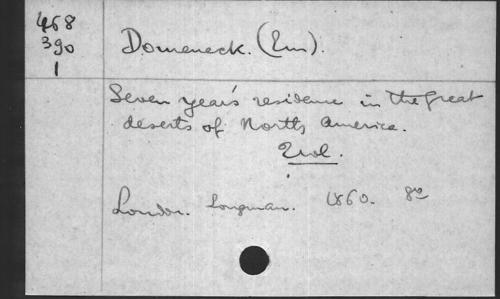 468
390
1
Domeneck. (Em).
Seven year's residence in the great
deserts of North America.
2 vol.
London. Longman. 1860. 8vo